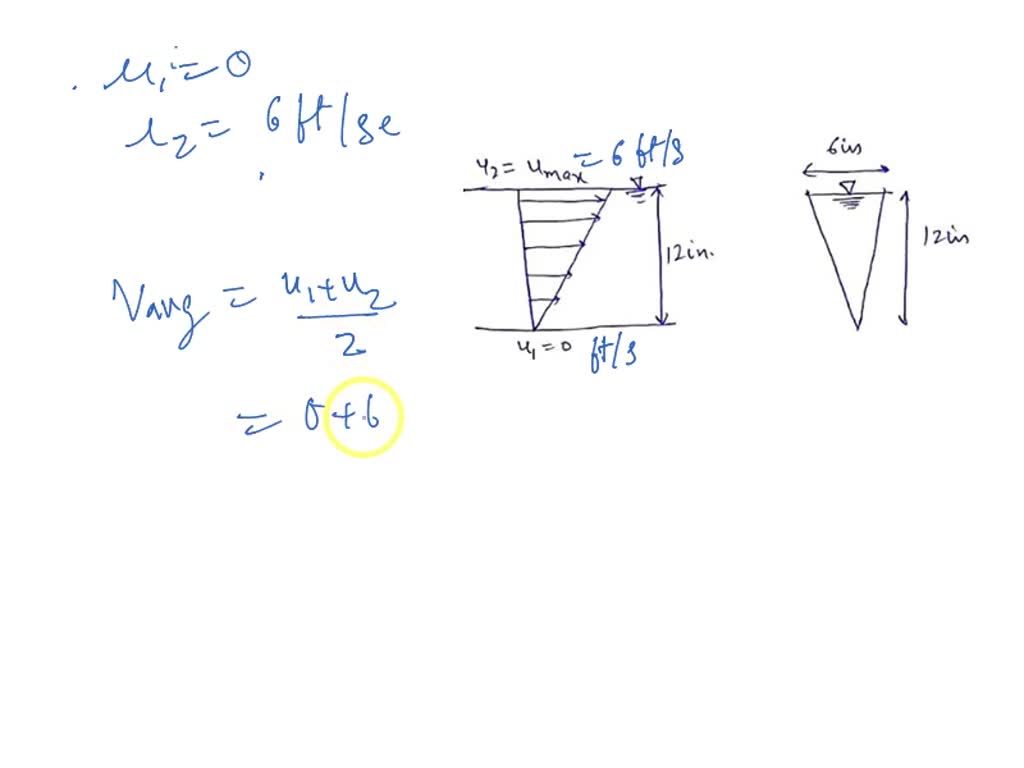 u₁ = 0
u₂ = 6 ft/se
Vavg = u₁+u₂ / 2
= 0+6
u₂ = umax = 6 ft/s
12in.
u₁ = 0 ft/s
6in
12in